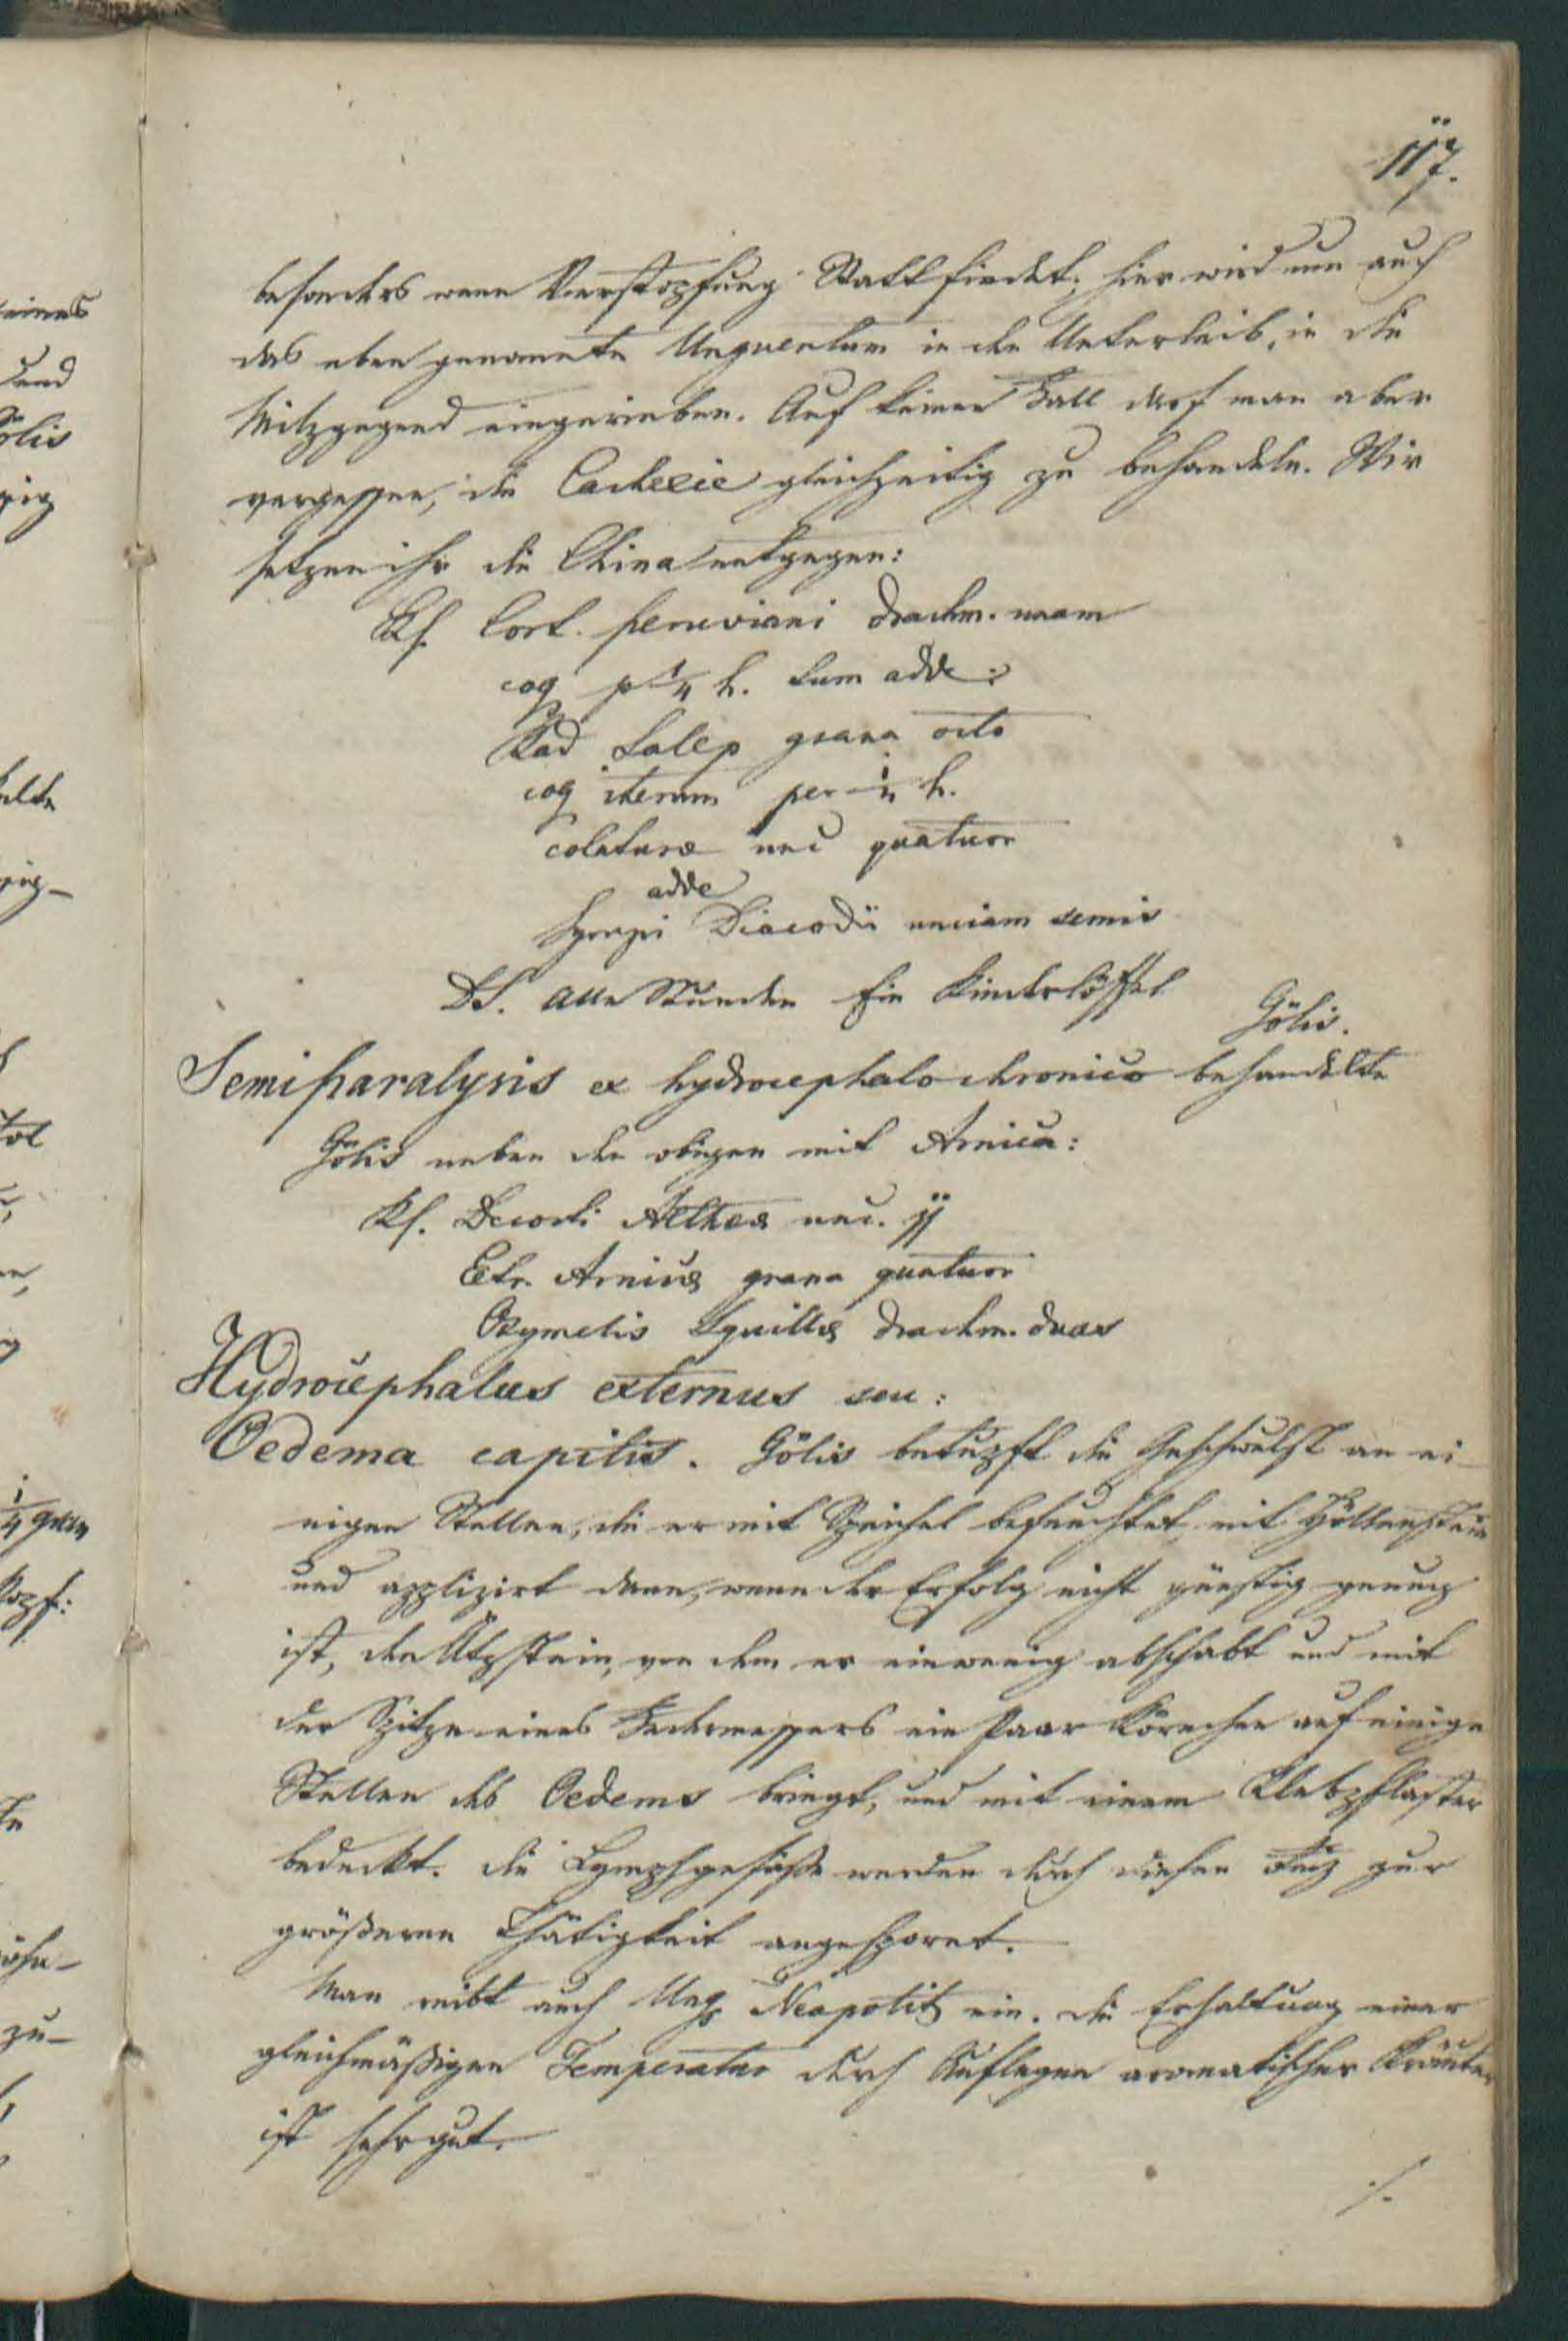 117.
besonders wenn Verstopfung Statt findet; hier wird nun auch
das eben genannte Unguentum in den Unterleib, in die
Milzgegend eingerieben. Auf keinen Fall darf man aber
vergessen, die Cachexie gleichzeitig zu behandeln. Wir
setzen ihr die China entgegen:
Rf. Cort. peruviani drachm. unam
coq p 1/4 h. tum adde:
Rad Salep grana octo
coq iterum per 1/4 h.
colaturæ unc quatuor
adde
Syrupi Diacodii unciam semis
DS. Alle Stunden Ein Kinderlöffel
Gölis.
Semiparalysis ex hydrocephalo chronico behandelte
Gölis neben den obigen mit Arnica:
Rf. Decocti Altheæ unc. jj
Extr. Arnicæ grana quatuor
Oxymelis Squillæ drachm. duas
Hydrocephalus externus seu:
Oedema capitis. Gölis betupft die Geschwulst an ei-
nigen Stellen, die er mit Speichel befeuchtet, mit Höllenstein
und applizirt dann, wenn der Erfolg nicht günstig genug
ist, den Ätzstein, von dem er ein wenig abschabt und mit
der Spitze eines Federmessers ein Paar Körnchen auf einige
Stellen des Oedems bringt, und mit einem Klebpflaster
bedeckt. Die Lymphgefäße werden durch diesen Reiz zur
größeren Thätigkeit angespornt.
Man reibt auch Ung Neapolit ein. Die Erhaltung einer
gleichmäßigen Temperatur durch Auflegen aromatischer Kräuter
ist sehr gut.
./.
eines
und
ölis
1/4 gran
Kopf:
zu-